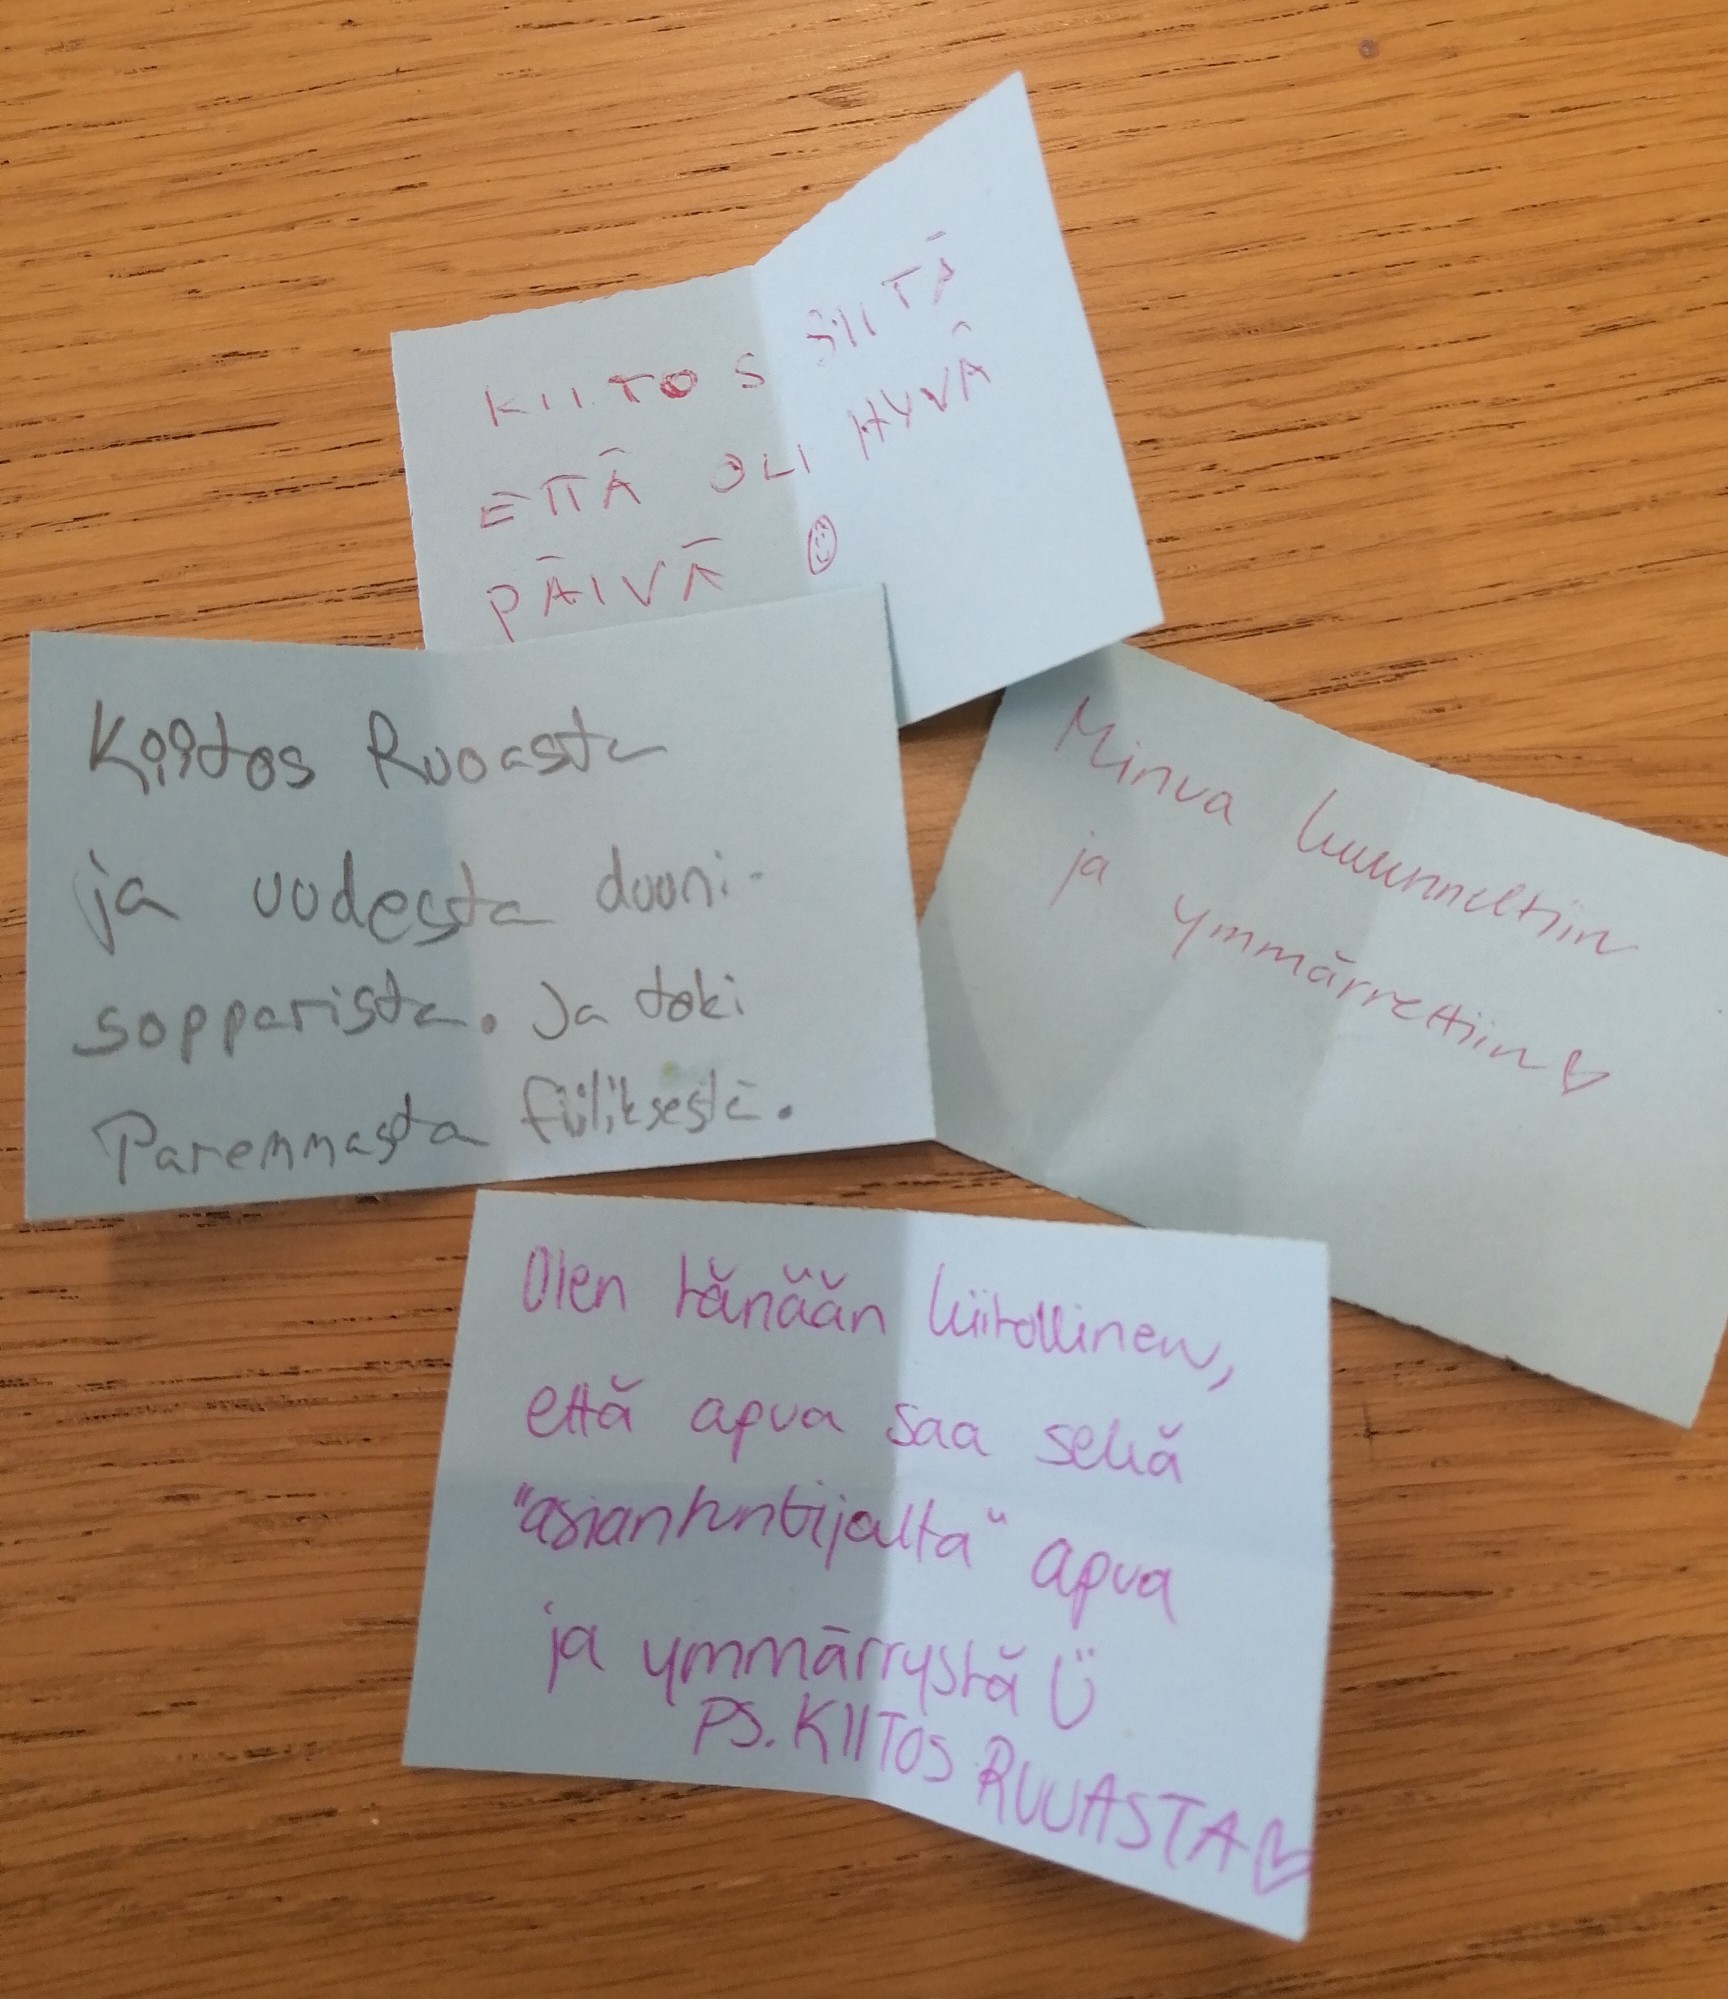 KIITOS SIITÄ
ETTÄ OLI HYVÄ
PÄIVÄ
Kiitos Ruoasta
ja uudesta duuni-
sopparista. Ja toki
Paremmasta fiiliksestä.
Minua kuunneltiin
ja ymmärrettiin
Olen tänään kiitollinen,
että apua saa sekä
"asiantuntijalta" apua
ja ymmärrystä
PS. KIITOS RUUASTA